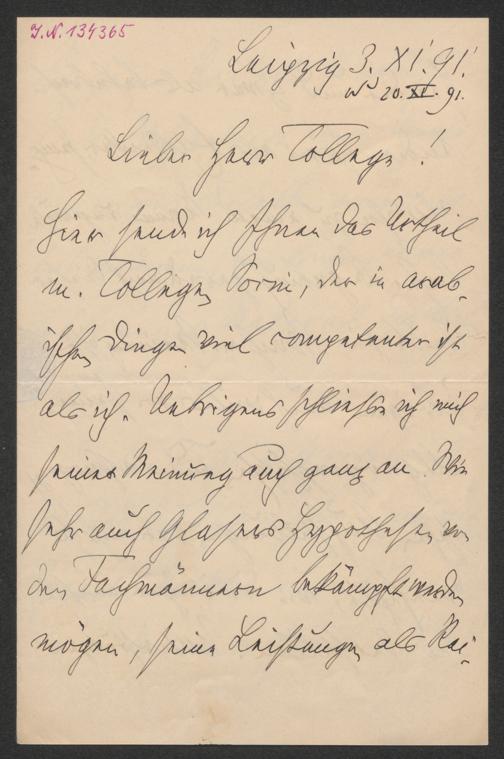 J.N. 134365
Leipzig 3. XI. 91.
20. XI. 91.
Lieber Herr College!
Hier sende ich Ihnen das Urtheil
m. Collegen Socin, der in arab-
ischen Dingen viel competenter ist
als ich. Uebrigens schließe ich mich
seiner Meinung auch ganz an. Wie
sehr auch Glasers Hypothesen von
den Fachmännern bekämpft werden
mögen, seine Leistungen als Rei-